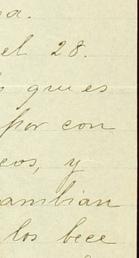 a.
el 28.
s que es
por con
eos, y
ambian
los bece